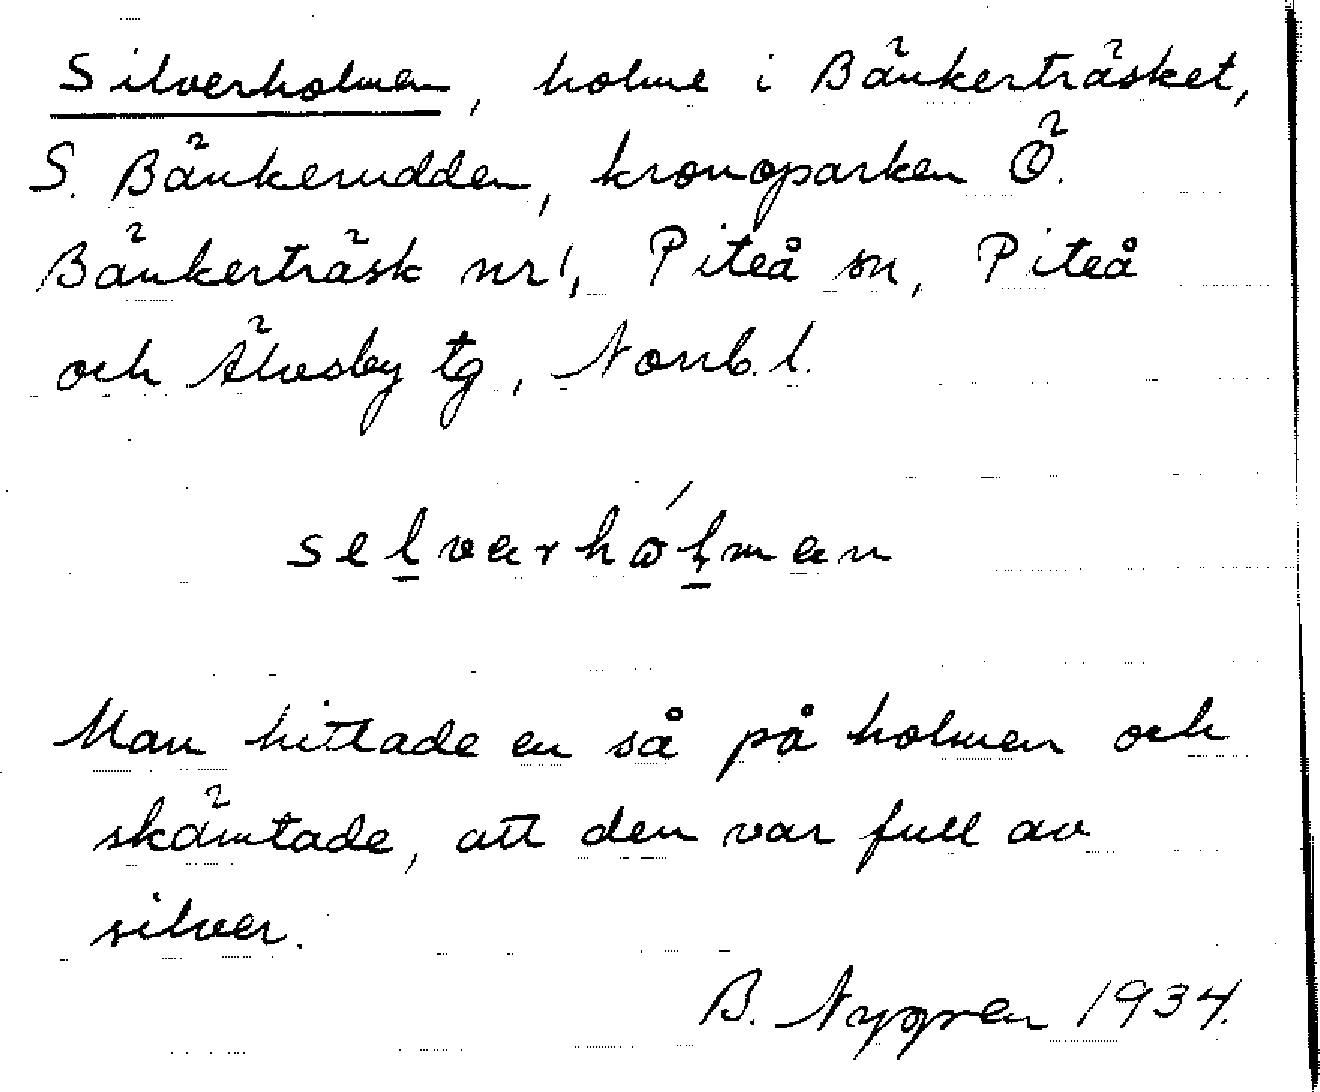 Silverholmen, holme i Bänkerträsket,
S. Bänkerudden, kronoparken Ö.
Bänkerträsk nr 1, Piteå sn, Piteå
och Älvsby tg, Norrb. l.
selvərhólmən
Man hittade en så på holmen och
skämtade, att den var full av
silver.
B. Nygren 1934.